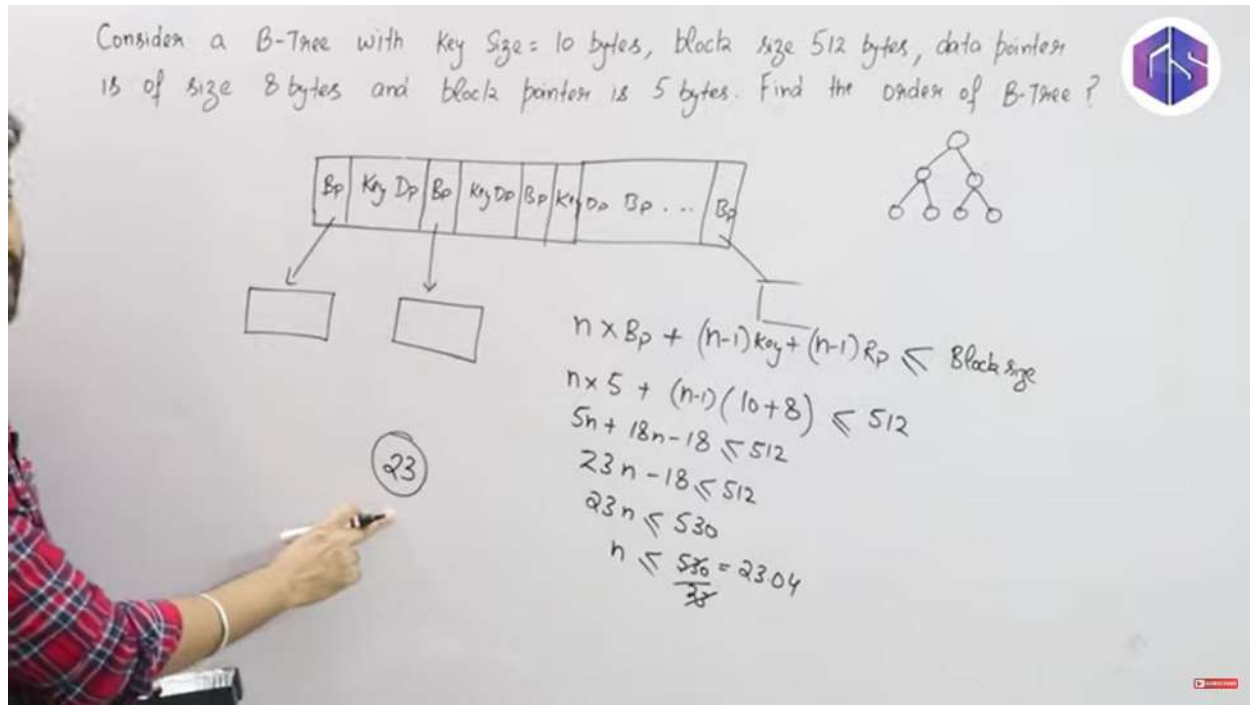 Consider a B-Tree with Key Size = 10 bytes, block size 512 bytes, data pointer
is of size 8 bytes and block pointer is 5 bytes. Find the order of B-Tree ?
Bp Key Dp Bp Key Dp Bp Key Dp Bp . .. Bp
n × Bp + (n-1) Key + (n-1) Rp ≤ Block size
n× 5 + (n-1) (10+8) ≤ 512
5n + 18n - 18 ≤ 512
23n - 18 ≤ 512
23
23n ≤ 530
n ≤ 530/23 = 23.04
SUBSCRIBE